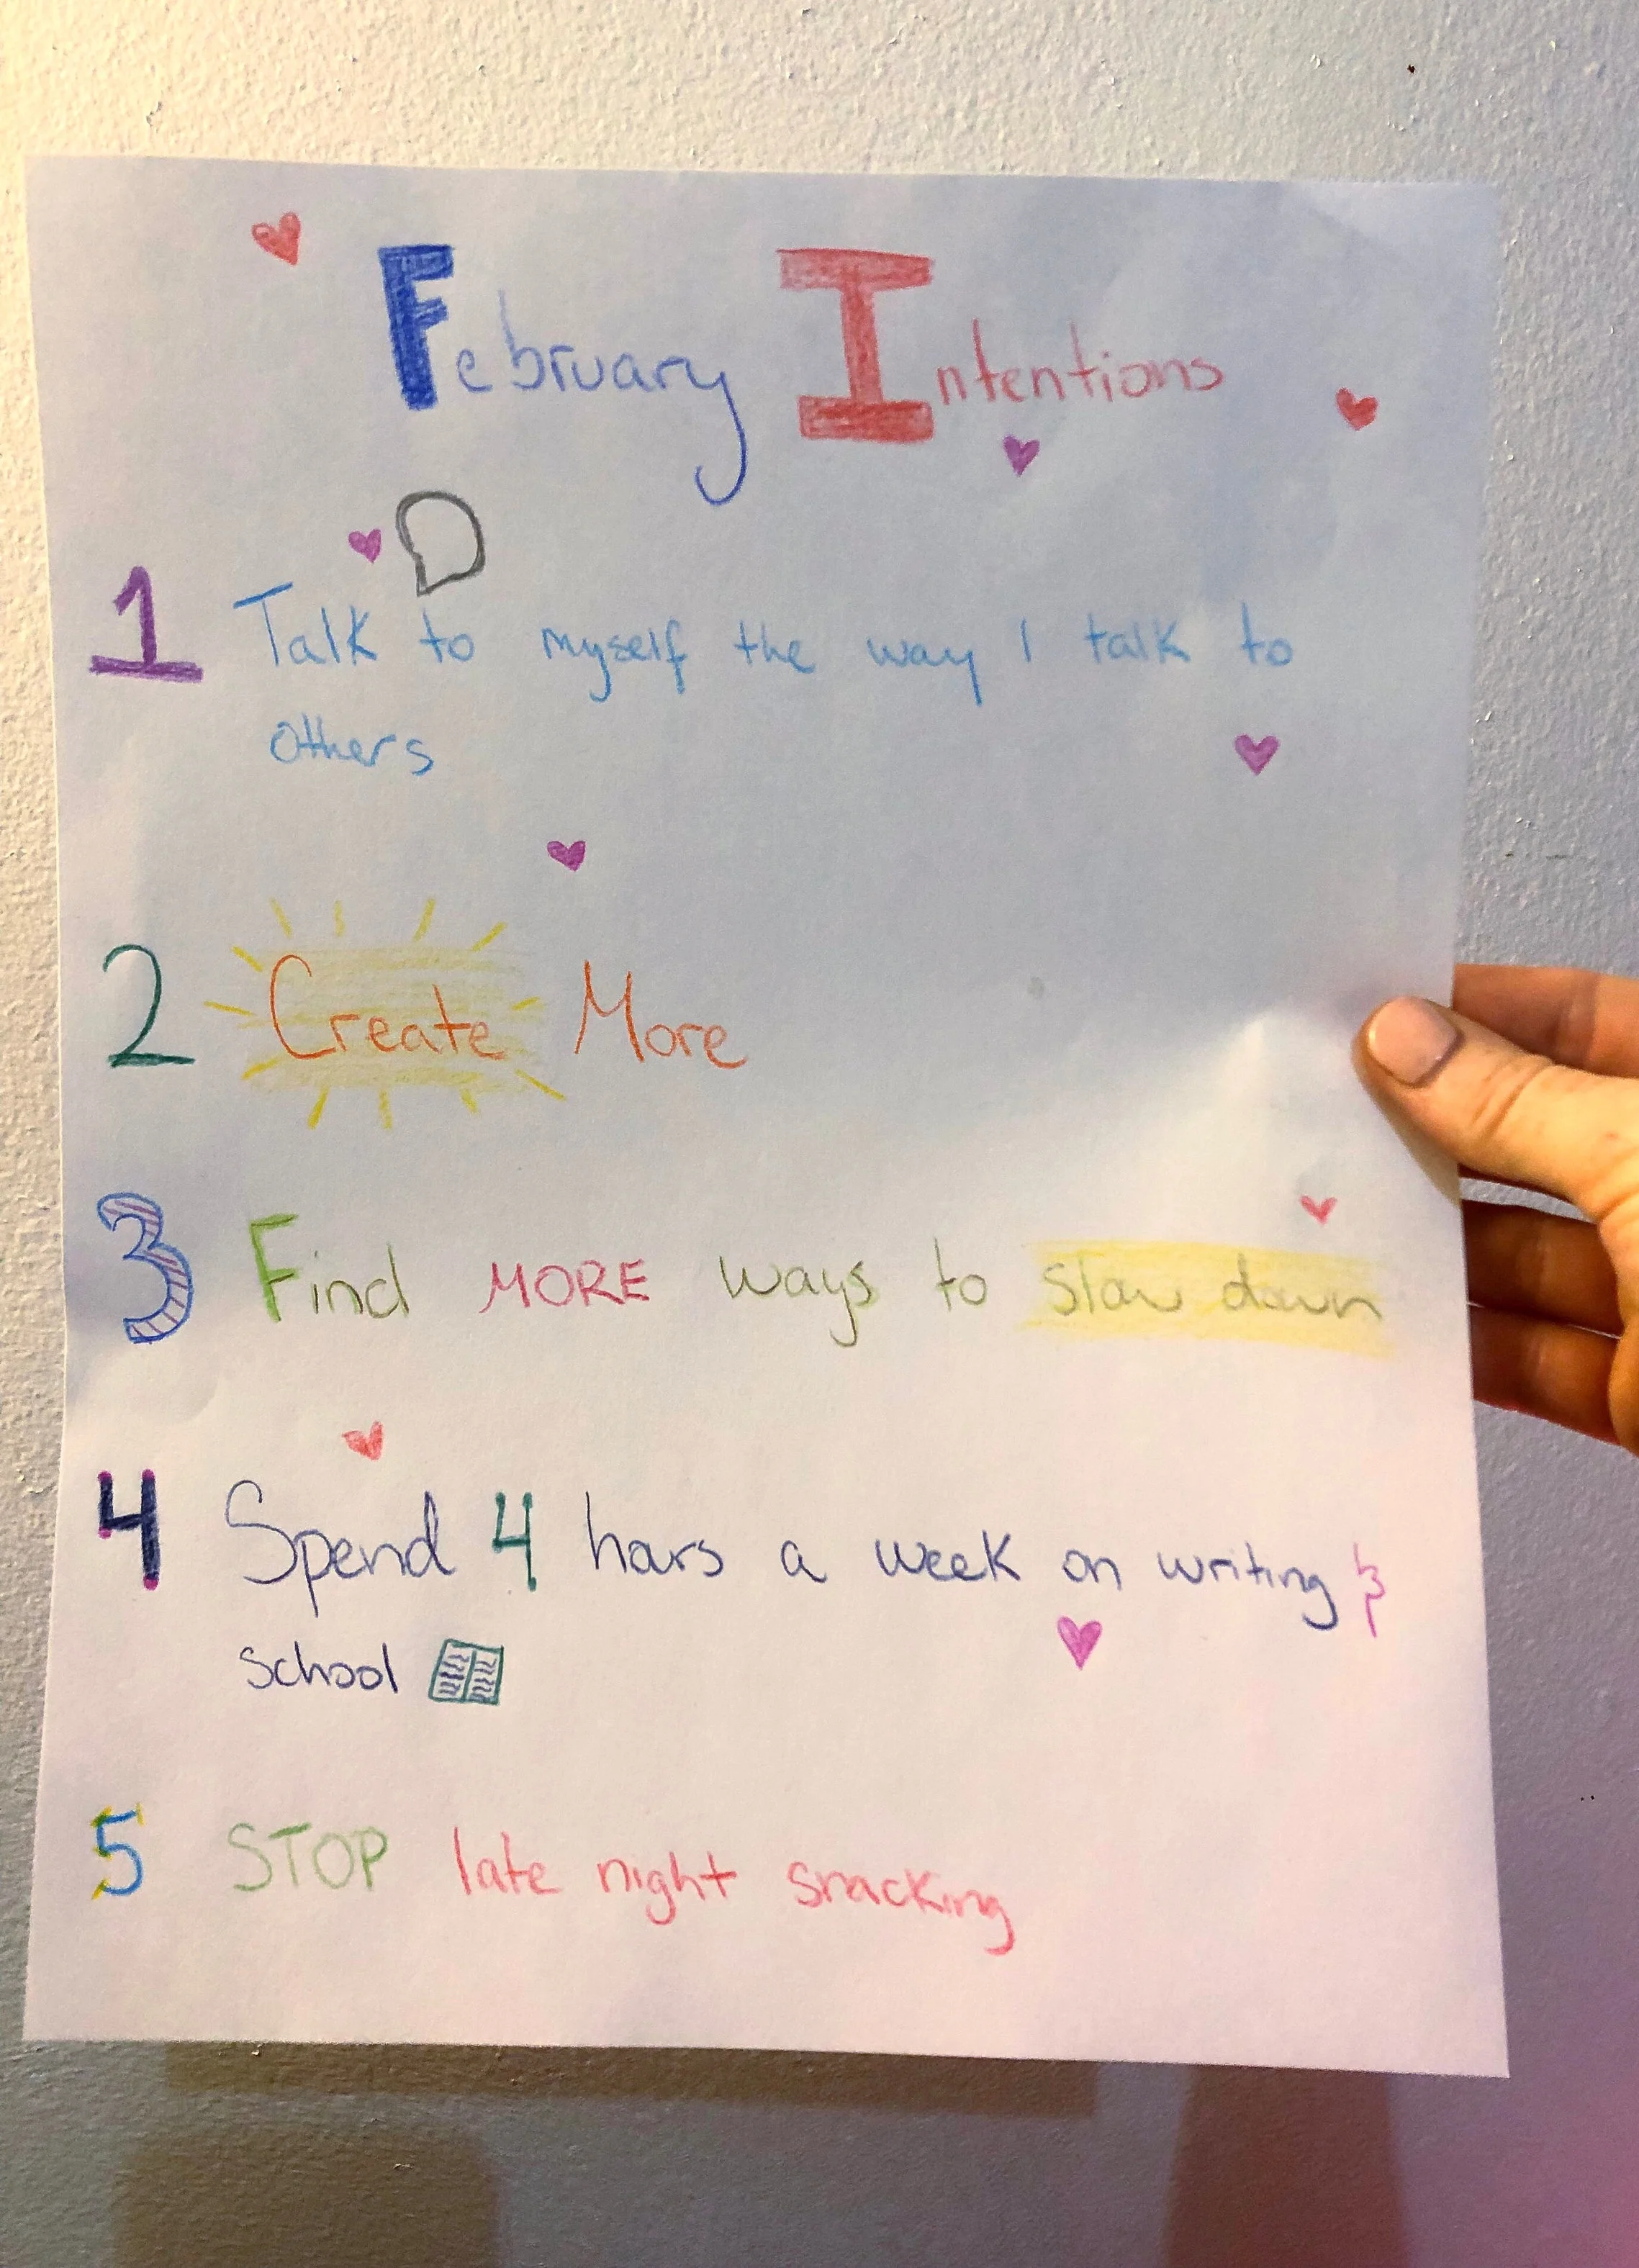 February Intentions
1 Talk to myself the way I talk to
others
2 Create More
3 Find MORE ways to slow down
4 Spend 4 hours a week on writing &
school
5 STOP late night snacking